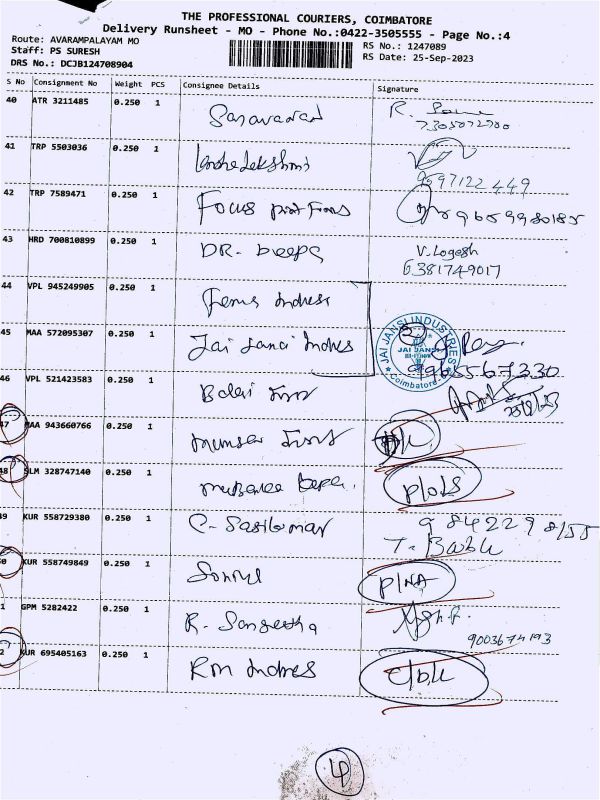 THE PROFESSIONAL COURIERS, COIMBATORE
Delivery Runsheet - MO - Phone No.:0422-3505555 - Page No.:4
Route: AVARAMPALAYAM MO
Staff: PS SURESH
DRS No.: DCJB124708904
RS No.: 1247089
RS Date: 25-Sep-2023
S No Consignment No Weight PCS Consignee Details Signature
40 ATR 3211485 0.250 1 Saravanan R.
41 TRP 5503036 0.250 1
9597122449
42 TRP 7589471 0.250 1 Focus 9659980185
43 HRD 700810899 0.250 1 DR. Deepa V. Logesh
6381749017
44 VPL 945249905 0.250 1
45 MAA 572095307 0.250 1 Jai Jansi Indres
JAI JANSI INDUSTRIES
JAI JANSI
Coimbatore
9965567330
46 VPL 521423583 0.250 1 Balaji
47 MAA 943660766 0.250 1
48 SLM 328747140 0.250 1 P/OLS
49 KUR 558729380 0.250 1 C. Sasikumar 9842298155
T. Babu
50 KUR 558749849 0.250 1 P/NA
1 GPM 5282422 0.250 1 R. Sangeetha
9003674193
2 KUR 695405163 0.250 1 RM Indres C/DK
4